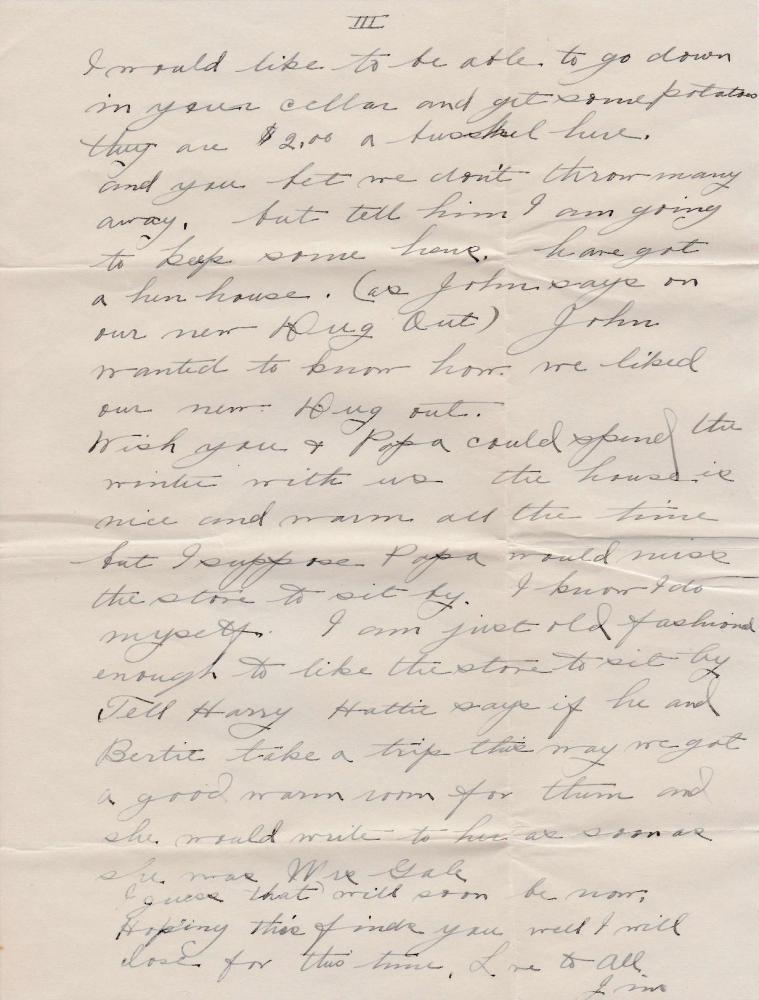 III
I would like to be able to go down
in your cellar and get some potatoes
they are $2.00 a busshel here.
and you bet we don't throw many
away. but tell him I am going
to keep some hens. have got
a hen house. (as John says on
our new Dug Out) John
wanted to know how we liked
our new Dug out.
Wish you & Papa could spend the
winter with us the house is
nice and warm all the time
but I suppose Papa would miss
the stove to sit by. I know I do
myself. I am just old fashiond
enough to like the stove to sit by
Tell Harry Hattie says if he and
Bertie take a trip this way we got
a good warm room for them and
she would write to her as soon as
she was Mrs Gale
I guess that will soon be now.
Hoping this finds you well I will
close for this time. Love to all
Jim